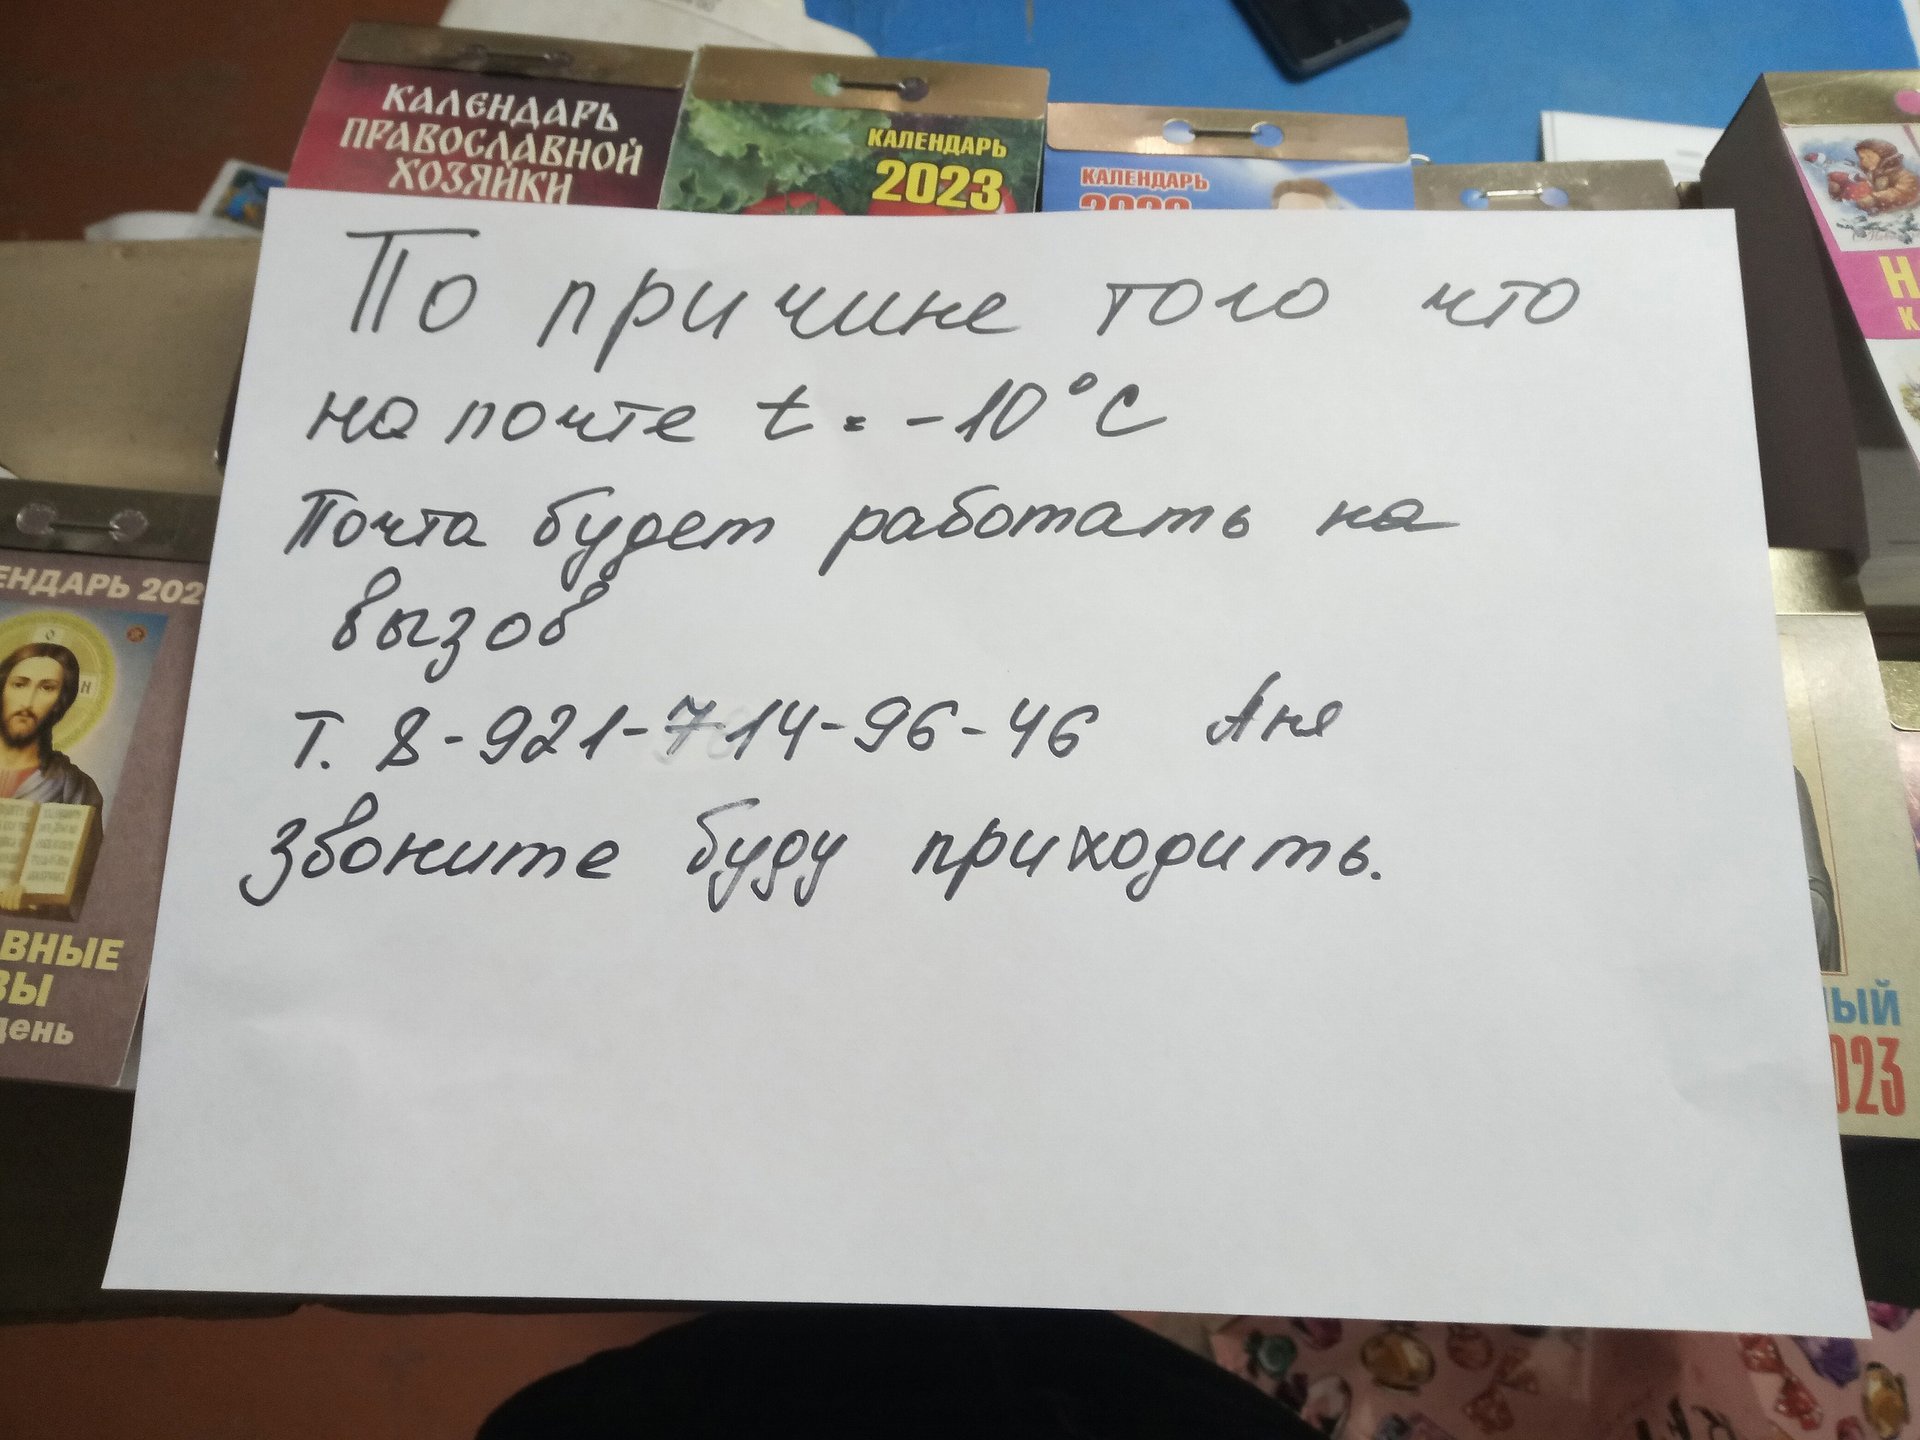 КАЛЕНДАРЬ
ПРАВОСЛАВНОЙ
ХОЗЯЙКИ
КАЛЕНДАРЬ
2023
КАЛЕНДАРЬ
По причине того что
на почте t = -10°C
Почта будет работать на
вызов
Т. 8-921-714-96-46 Аня
звоните буду приходить.
ЕНДАРЬ 202
ВНЫЕ
ЗЫ
день
Н
К
ЫЙ
023